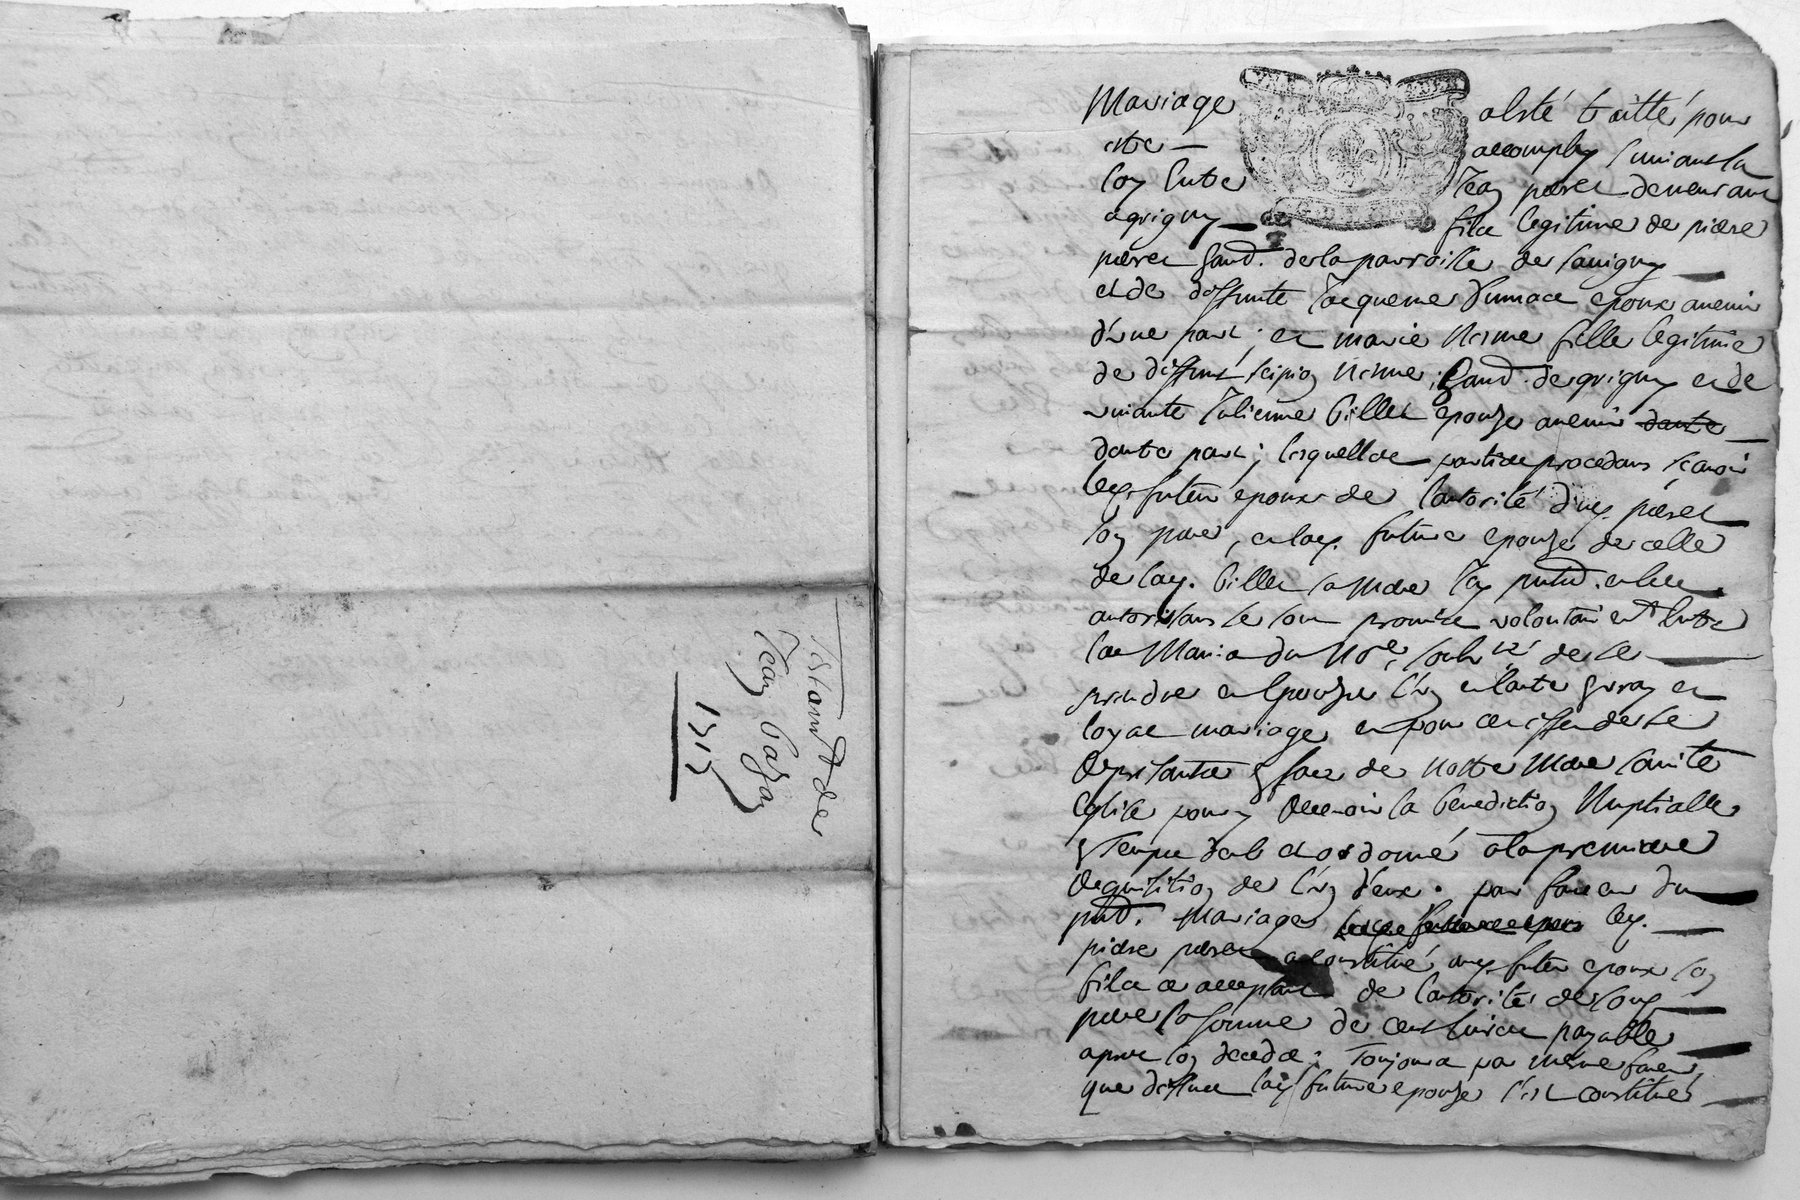 Testamt de
Jean Pazan
1715
Mariage a esté traitté pour
estre accomply suivant la
loy Entre Jean peret demeurant
a grigny fils legitime de pierre
peret gand. de la parroisse de savigny
et de deffunte Jacqueme epoux avenir
d'une part, et marie Nesme fille legitime
de deffunt scipion Nesme, gand. de grigny et de
vivante Julienne billet epouze avenir dautre
dautre part; lesquelles parties procedans scavoir
led. futur epoux de l'autorité dud. peret
son pere, et lad. future epouze de celle
de lad. billet sa Mere Icy pntd. et les
autorisans se sont promise volontairemt Entre
les Mains du Nore soubzné de se
prendre et Epouzer l'un et lautre en vray et
loyal mariage, et pour ce effet de se
Representer en face de Nostre Mere sainte
Eglise pour y Recevoir la benediction Nuptialle
en Temps deub et ordonné a la premiere
Requisition de l'un d'eux. par faveur du
pntd. Mariage led.
pierre peret a constitué aud. futur epoux son
fils ce acceptant de l'autorité de sond.
pere la somme de cent livres payable
apres son decedz; Toujours par mesme faveur
que dessus lad. future epouze s'est constitué